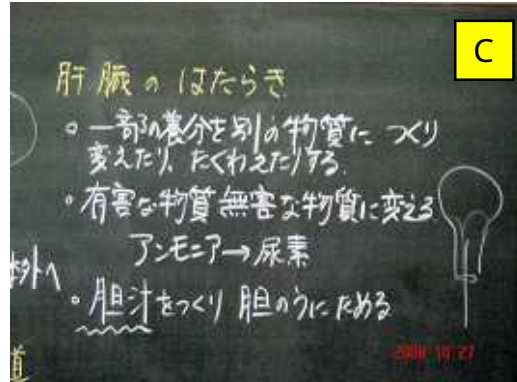 C
肝臓のはたらき
。一部の養分を別の物質に つくり
変えたり、たくわえたりする
。有害な物質 無害な物質に変える
アンモニア→尿素
体外へ
。胆汁をつくり 胆のうにためる
道
2008 10 27